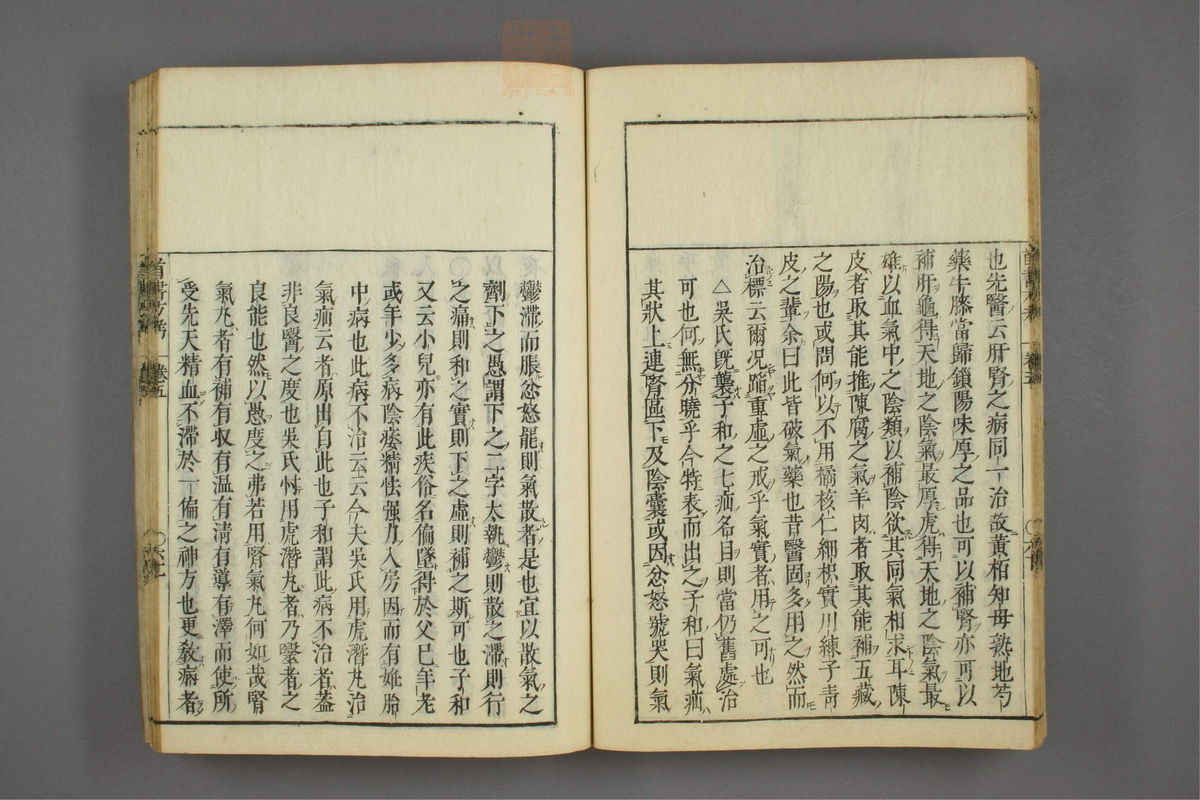 也先醫云肝腎之病同一治故黃栢知母熟地芍
藥牛膝當歸鎖陽味厚之品也可以補腎亦可以
補肝龜得天地之陰氣最厚虎得天地之陰氣最
雄以血氣中之陰類以補陰欲其同氣相求耳陳
皮者取其能推陳腐之氣羊肉者取其能補五藏
之陽也或問何以不用橘核仁細枳實川練子青
皮之輩余曰此皆破氣藥也昔醫固多用之然而
治標云爾況蹈重虛之戒乎氣實者用之可也
△吳氏旣襲子和之七疝名目則當仍舊處治
可也何無分曉乎今特表而出之子和曰氣疝
其狀上連腎區下及陰囊或因忿怒號哭則氣
鬱滯而脹忿怒能則氣散者是也宜以散氣之
劑下之愚謂下之二字太執鬱則散之滯則行
之痛則和之實則下之虛則補之斯可也子和
又云小兒亦有此疾俗名偏墜得於父已年老
或年少多病陰痿精怯强力入房因而有姙胎
中病也此病不治云云今夫吳氏用虎潛丸治
氣疝云者原出自此也子和謂此病不治者蓋
非良醫之度也吳氏忖用虎潛丸者乃毉者之
良能也然以愚度之弗若用腎氣丸何如哉腎
氣丸者有補有収有温有淸有導有澤而使所
受先天精血不滯於一偏之神方也更教病者
卷五
zysj.com.cn